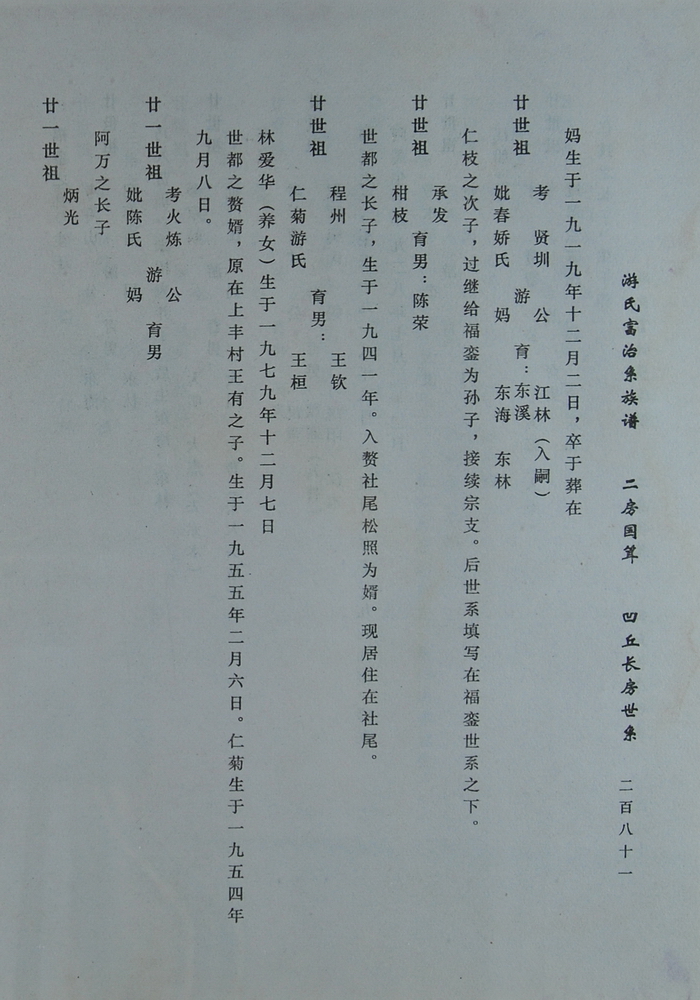 游氏富治系族谱 二房国篺 凹丘长房世系 二百八十一
妈生于一九一九年十二月二日，卒于葬在
考 贤圳 公 江林（入嗣）
廿世祖 游 育：东溪
妣春娇氏 妈 东海 东林
仁枝之次子，过继给福銮为孙子，接续宗支。后世系填写在福銮世系之下。
承发
廿世祖 育男：陈荣
柑枝
世都之长子，生于一九四一年。入赘社尾松照为婿。现居住在社尾。
程州 王钦
廿世祖 育男：
仁菊游氏 王桓
林爱华（养女）生于一九七九年十二月七日
世都之赘婿，原在上丰村王有之子。生于一九五五年二月六日。仁菊生于一九五四年
九月八日。
考火炼 公
廿一世祖 游 育男
妣陈氏 妈
阿万之长子
炳光
廿一世祖